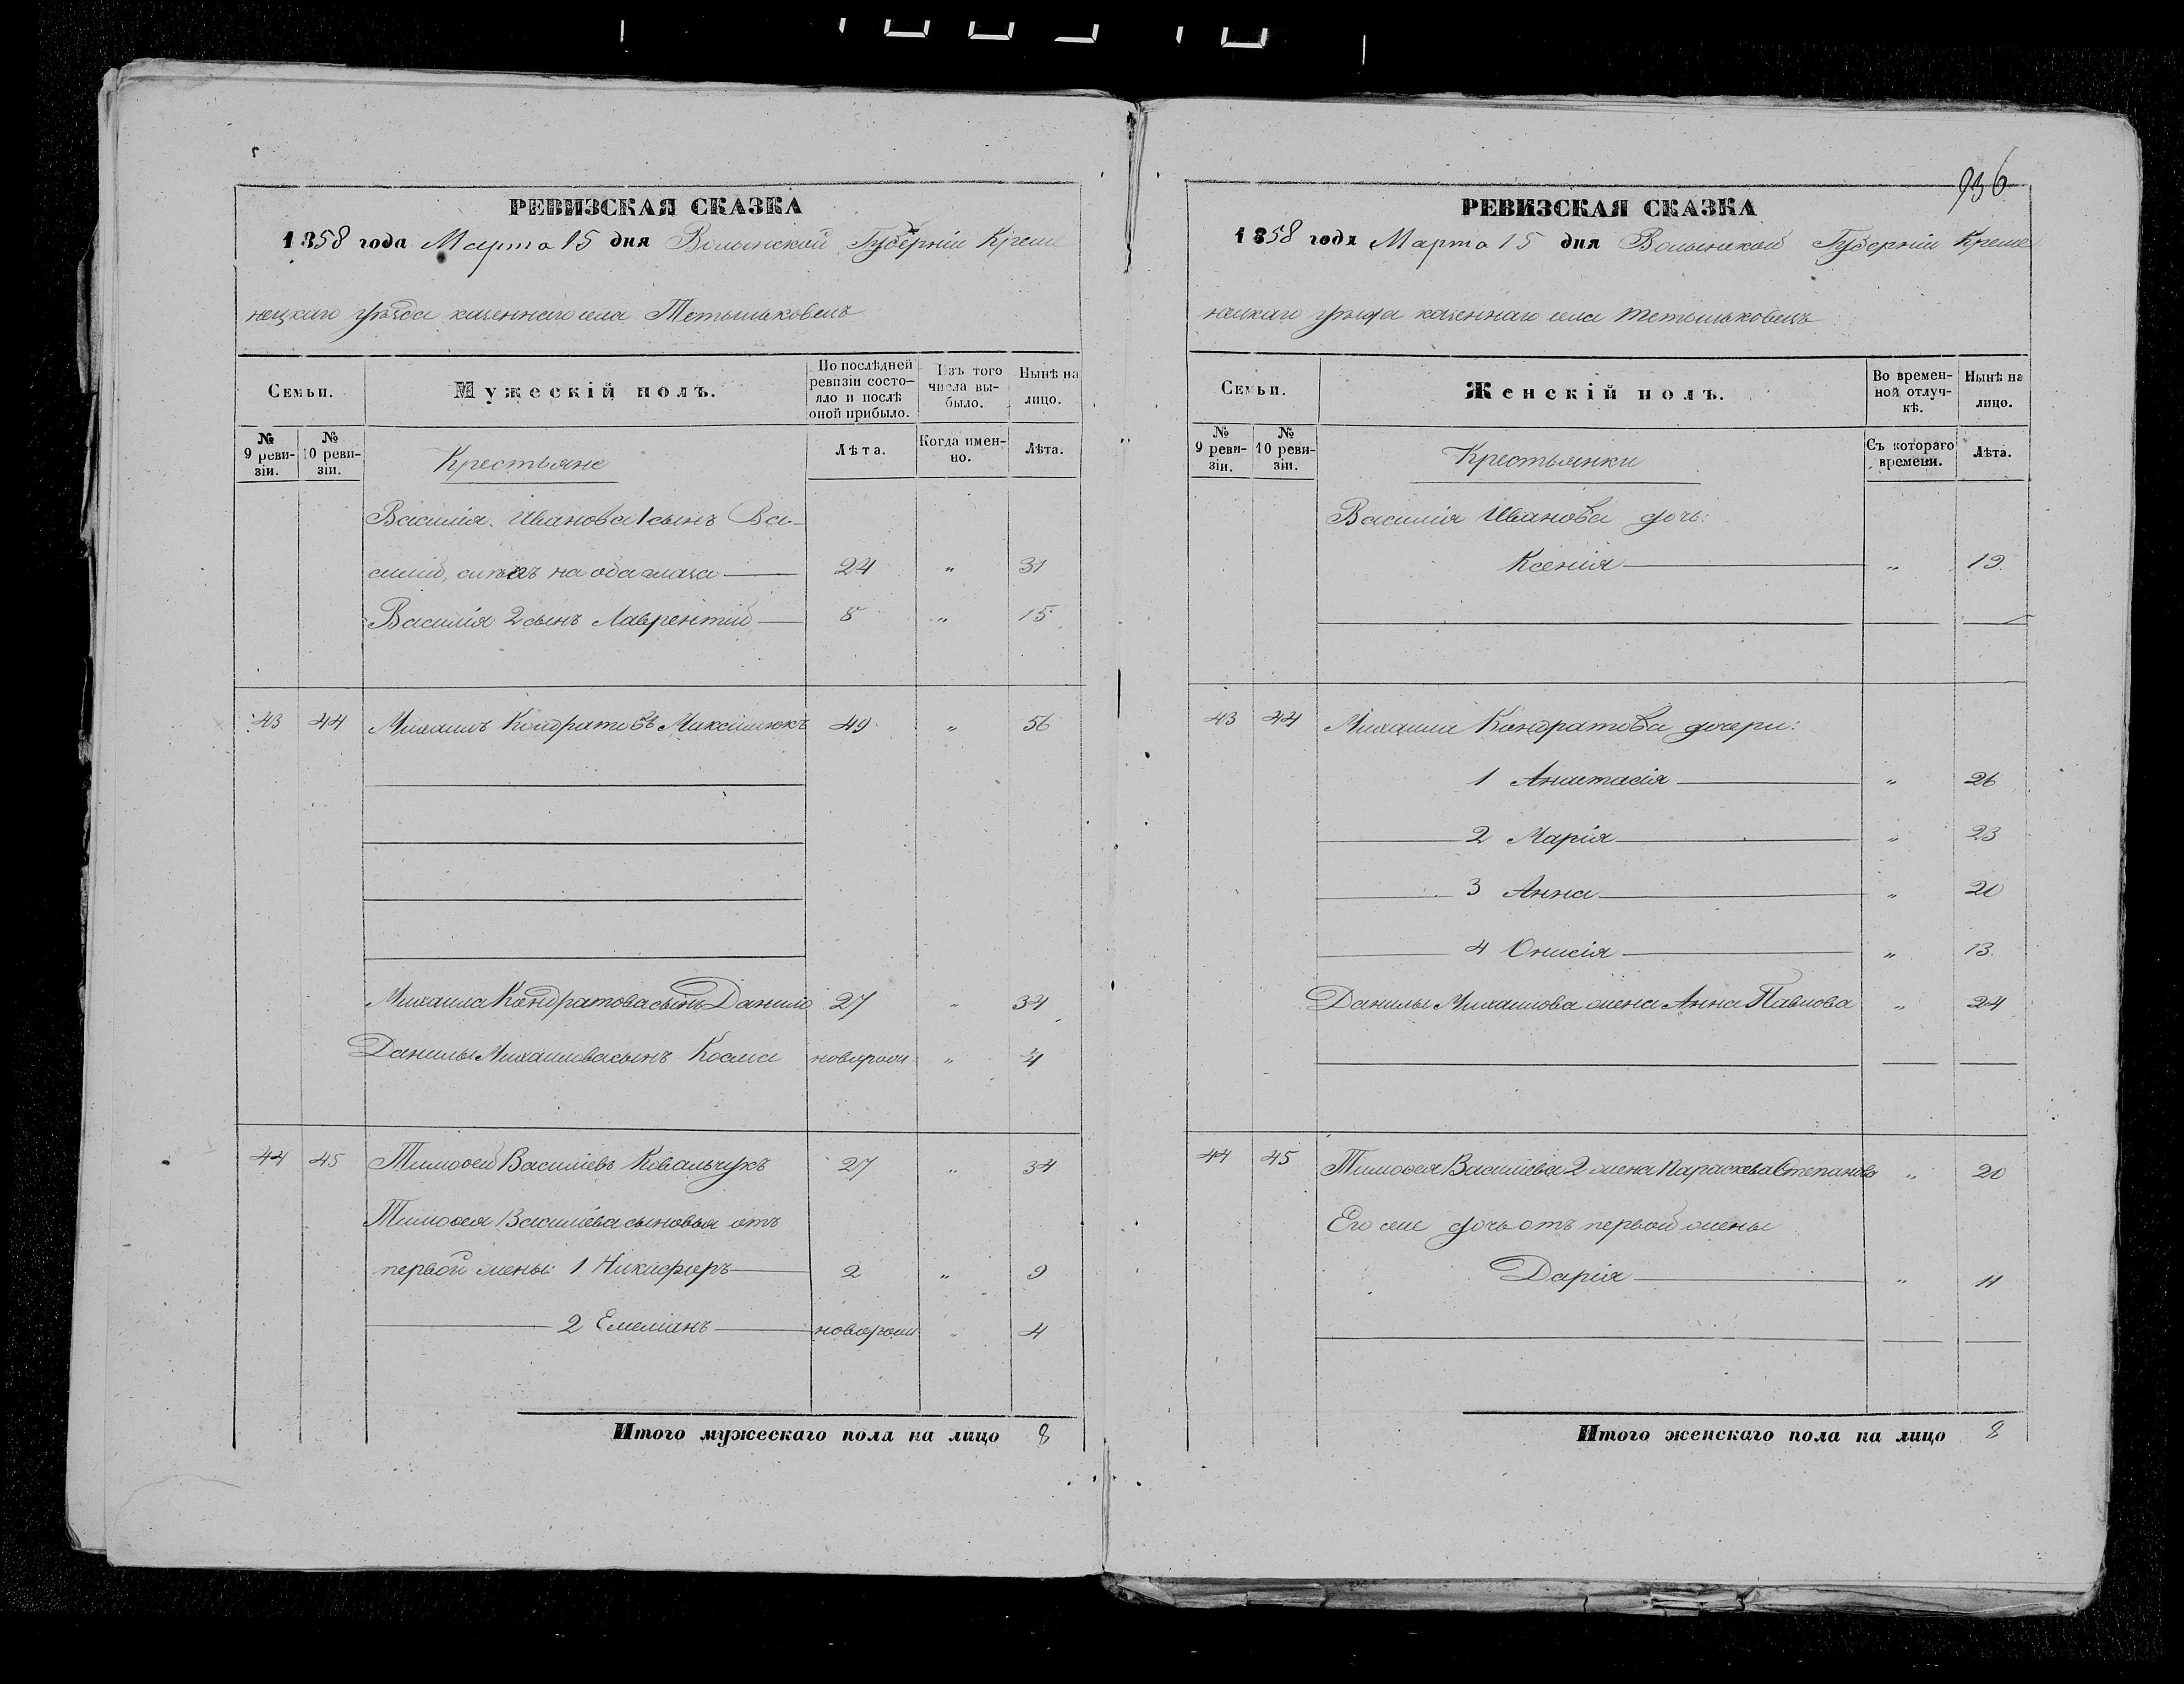 РЕВИЗСКАЯ СКАЗКА
1858 года Марта 15 дня Волынской Губерніи Креме
нецкаго уѣзда казеннаго села Тетыльковецъ
Семьи.
Мужескій полъ.
По послѣдней ревизіи состояло и послѣ оной прибыло.
Изъ того числа выбыло.
Нынѣ на лицо.
№ 9 ревизіи.
№ 10 ревизіи.
Крестьяне
Лѣта.
Когда именно.
Лѣта.
Василія Иванова 1 сынъ Ва-
силій, слѣпъ на оба глаза 24 " 31
Василія 2 сынъ Лаврентій 8 " 15
43 44 Михаилъ Кондратовъ Максимюкъ 49 " 56
Михаила Кондратова сынъ Данило 27 " 34
Данилы Михаилова сынъ Косма новорож " 4
44 45 Тимофей Василіевъ Ковальчукъ 27 " 34
Тимофея Василіева сыновья отъ
первой жены: 1 Никифоръ 2 " 9
2 Емеліанъ новорож " 4
Итого мужескаго пола на лицо 8
936
РЕВИЗСКАЯ СКАЗКА
1858 года Марта 15 дня Волынской Губерніи Креме
нецкаго уѣзда казеннаго села Тетыльковецъ
Семьи.
Женскій полъ.
Во временной отлучкѣ.
Нынѣ на лицо.
№ 9 ревизіи.
№ 10 ревизіи.
Крестьянки
Съ котораго времени.
Лѣта.
Василія Иванова дочь:
Ксенія " 19
43 44 Михаила Кондратова дочери:
1 Анастасія " 26
2 Марія " 23
3 Анна " 20
4 Онисія " 13
Данилы Михаилова жена Анна Павлова " 24
44 45 Тимофея Василіева 2 жена Параскева Степанова " 20
Его же дочь отъ первой жены
Дарія " 11
Итого женскаго пола на лицо 8